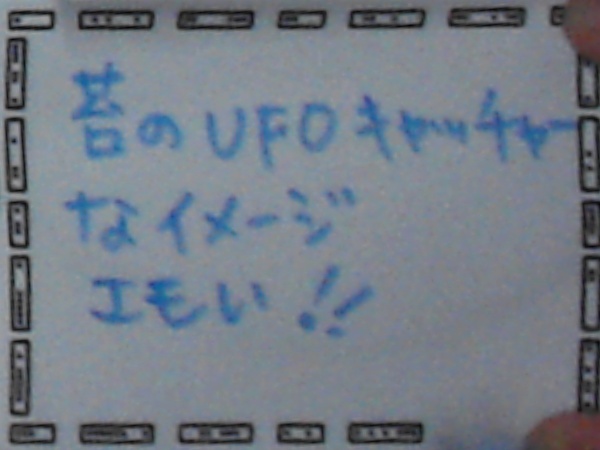 昔のUFOキャッチャー
なイメージ
エモい!!